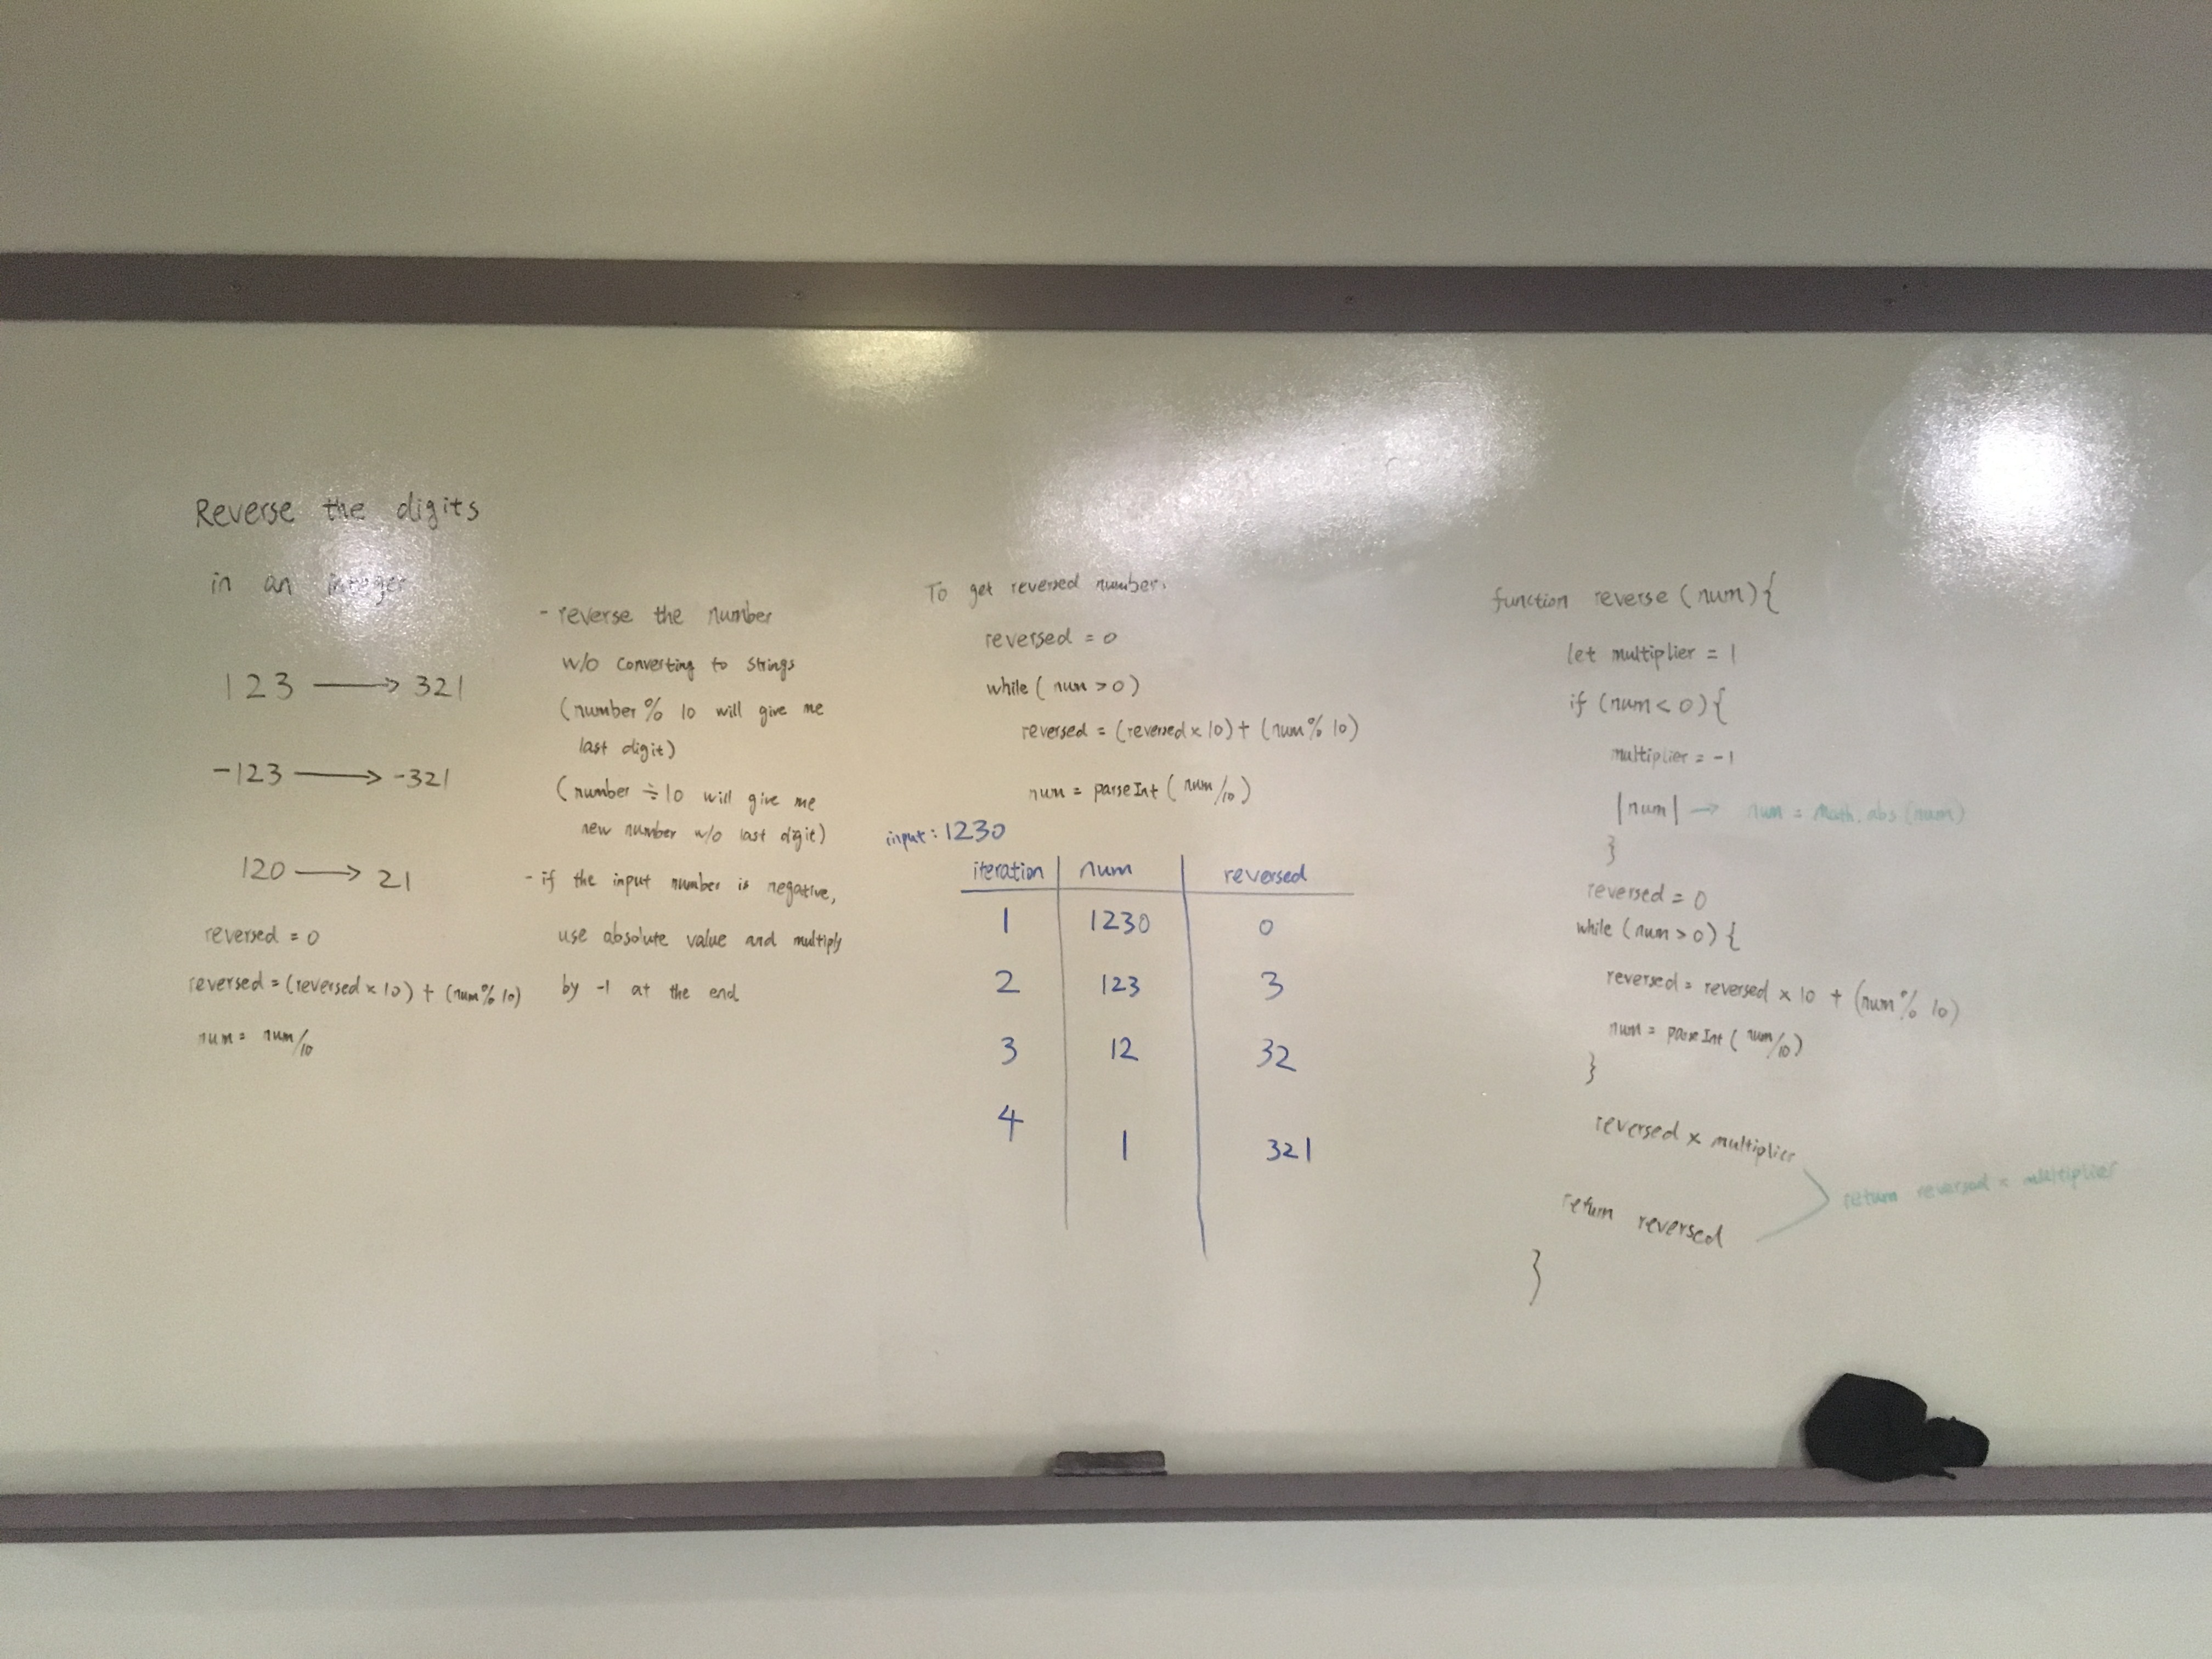 Reverse the digits
in an integer
123 → 321
-123 → -321
120 → 21
reversed = 0
reversed = (reversed x 10) + (num % 10)
num = num/10
- reverse the number
w/o converting to strings
(number % 10 will give me
last digit)
(number ÷ 10 will give me
new number w/o last digit)
- if the input number is negative,
use absolute value and multiply
by -1 at the end
To get reversed number.
reversed = 0
while ( num > 0)
reversed = (reversed x 10) + (num % 10)
num = parseInt ( num/10 )
input : 1230
iteration num reversed
1 1230 0
2 123 3
3 12 32
4 1 321
function reverse (num) {
let multiplier = 1
if (num < 0) {
multiplier = -1
|num| → num = Math.abs (num)
}
reversed = 0
while (num > 0) {
reversed = reversed x 10 + (num % 10)
num = parseInt ( num/10 )
}
reversed x multiplier
return reversed x multiplier
return reversed
}